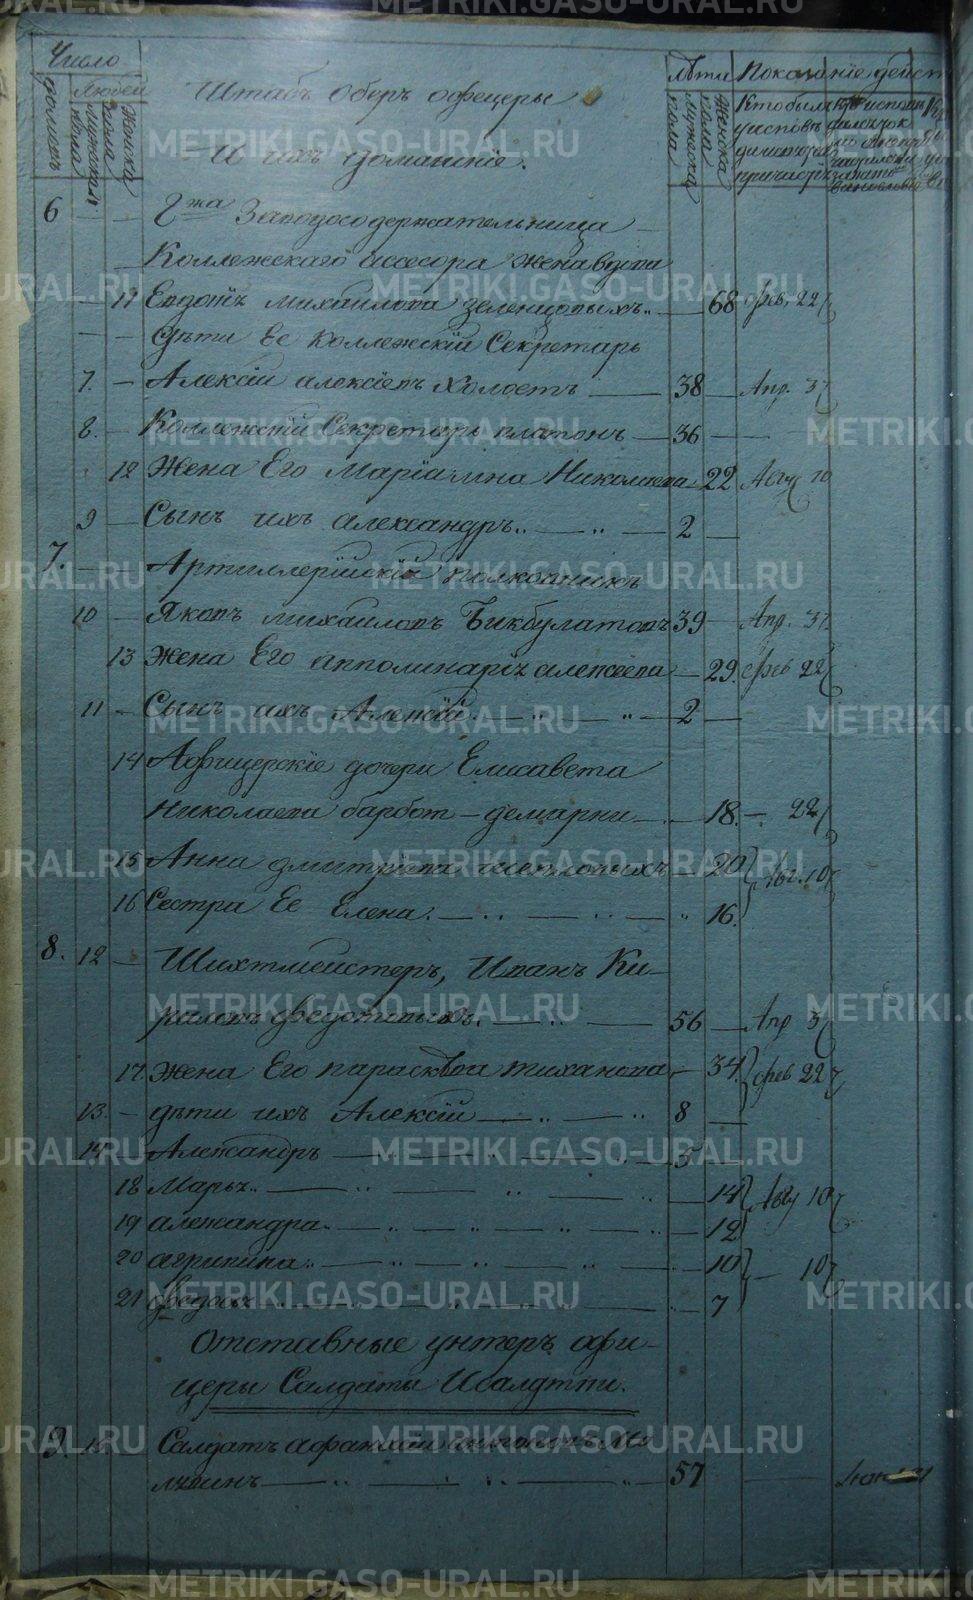 Число
домовъ
людей
мужеска пола
женска пола
Штабъ Оберъ офецеры
И ихъ домашнїе.
Лѣта
мужеска пола
женска пола
Показанїе дейст
Кто былъ
у исповѣ
ди и
причас
6 Гжа Заводосодержательница
Коллежскаго ассесора жена вдова
11 Евдокїѧ михаилова зеленцовыхъ 68 фев. 22
Дѣти Ее Коллежскїй Секретарь
7. Алексїй алексїевъ холостъ 38 Апр. 3
8. Коллежскїй Секретарь платонъ 36
12 Жена Его Марїамна Николаева 22 Авгу 10
9 Сынъ ихъ александръ 2
7. Артиллерїйскїй полковникъ
10 Яковъ михаиловъ Бикбулатовъ 39 Апр. 3
13 Жена Его апполинарїѧ алексеева 29 фев 22
11 Сынъ ихъ Алексїй 2
14 Афицерскїе дочери Елисавета
Николаева барбот-демарни 18. 22
15 Анна дмитрїева 20 Авг. 10
16 Сестра Ее Елена. 16.
8. 12 Шихтмейстеръ, Иванъ Ки-
риловъ федотовыхъ. 56 Апр 3
17 Жена Его парасковїа тиханова 34. фев 22
13 дѣти ихъ Алексїй 8
14 Александръ 5
18 Марьѧ 14 Авгу 10
19 александра 12
20 агрипина 10 10
21 федосьѧ 7
Отставные унтеръ афи-
церы Салдаты И салдатки.
9. 15 Салдатъ афанасїй
57
METRIKI.GASO-URAL.RU